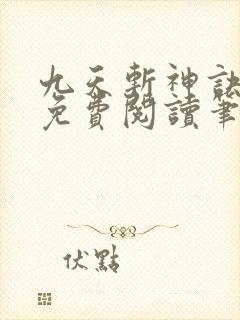 九天斬神訣
免費閱讀筆
伏點